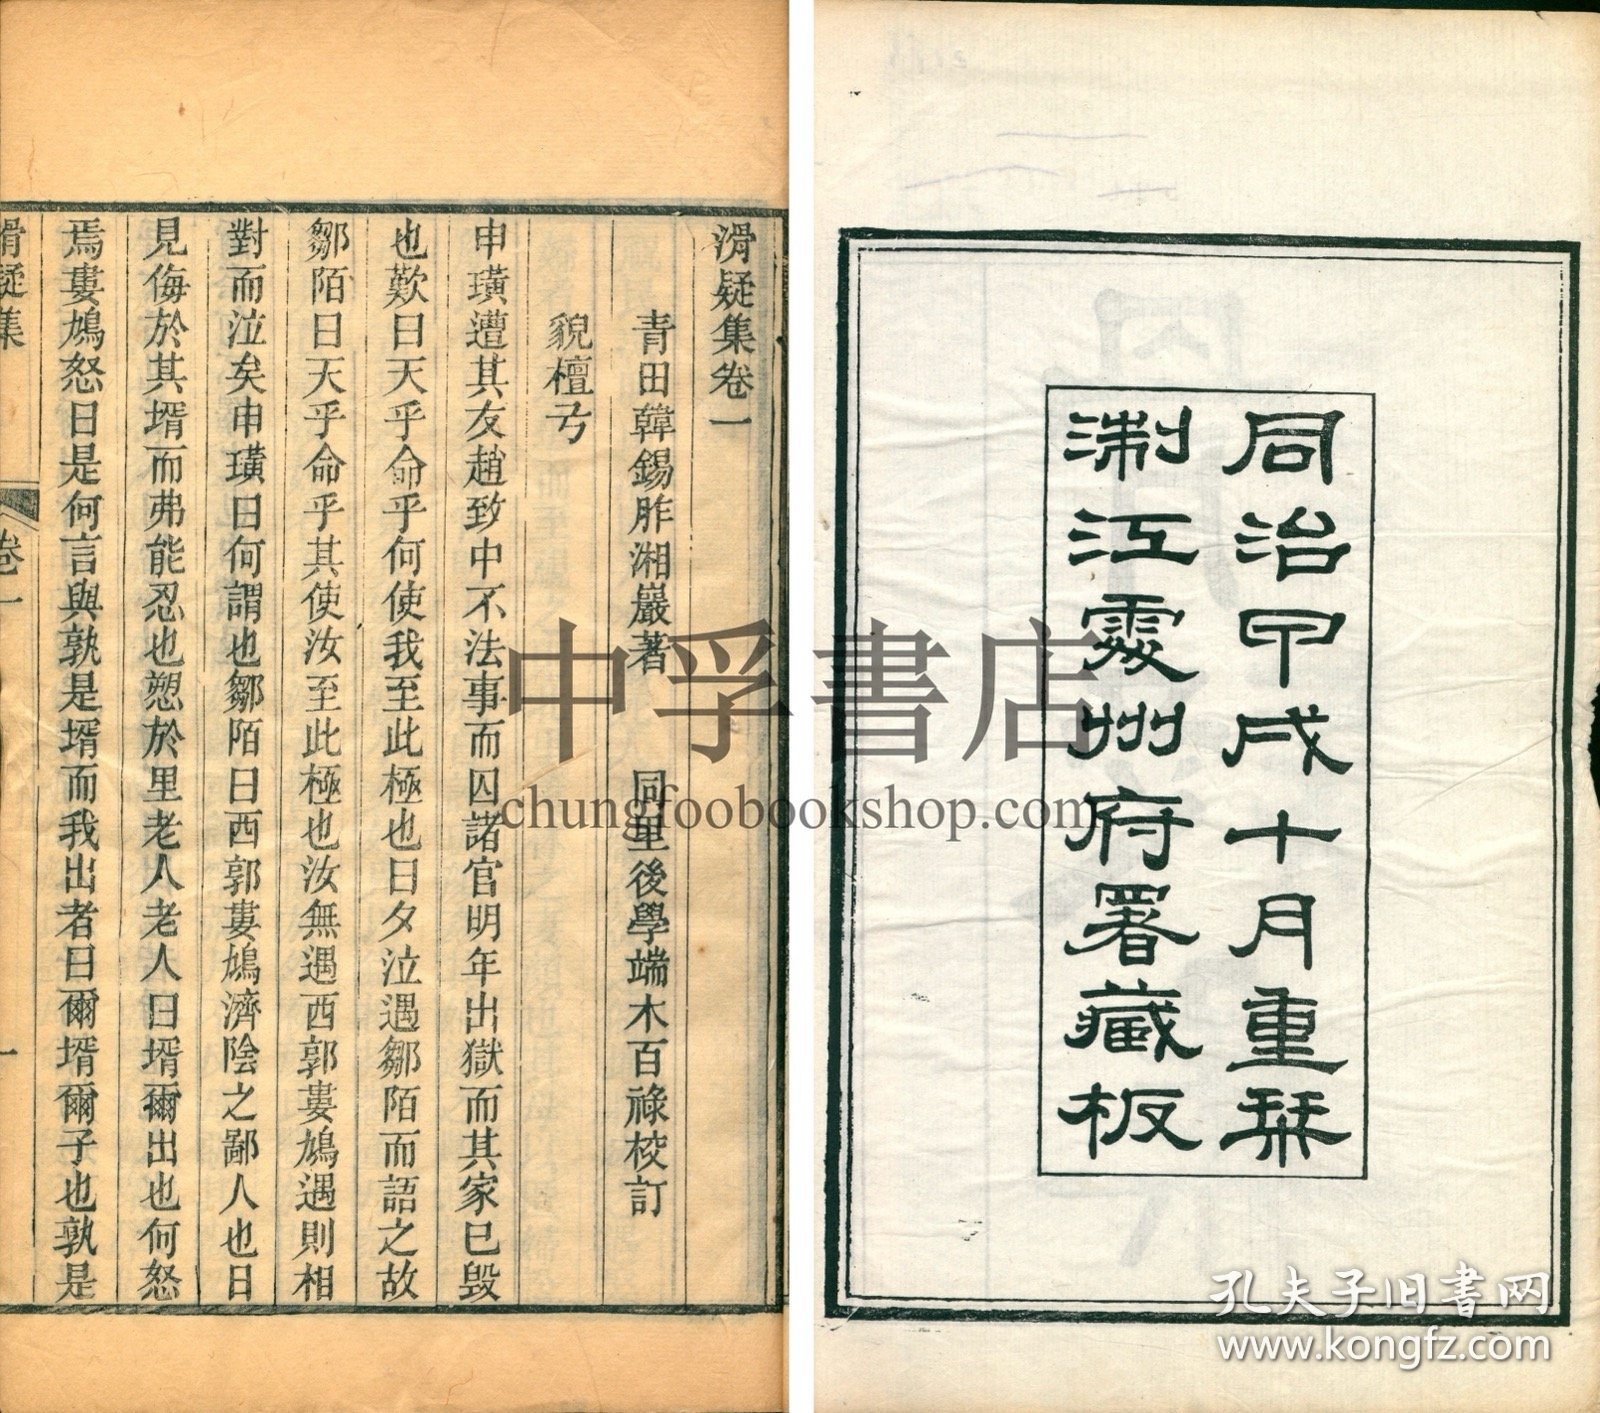 同治甲戌十月重栞
淛江處州府署藏板
滑疑集卷一
青田韓錫胙湘巖著　同里後學端木百祿校訂
貌檀弓
申璜遭其友趙致中不法事而囚諸官明年出獄而其家已毀
也歎曰天乎命乎何使我至此極也日夕泣遇鄒陌而語之故
鄒陌曰天乎命乎其使汝至此極也汝無遇西郭婁鳩遇則相
對而泣矣申璜曰何謂也鄒陌曰西郭婁鳩濟陰之鄙人也日
見侮於其壻而弗能忍也愬於里老人老人曰壻爾出也何怒
焉婁鳩怒曰是何言與孰是壻而我出者曰爾壻爾子也孰是
滑疑集
卷一
一
中孚書店
chungfoobookshop.com
孔夫子旧书网
www.kongfz.com